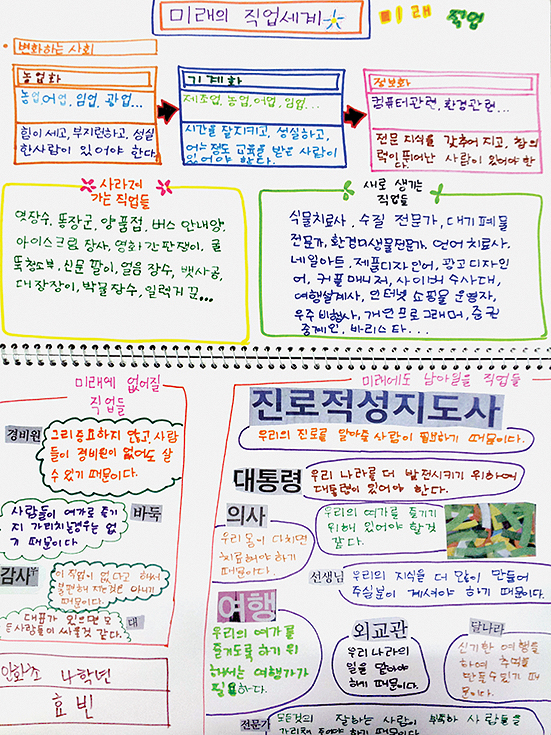 미래의 직업세계
미래 직업
변화하는 사회
농업화
농업,어업, 임업, 광업...
힘이 세고, 부지런하고, 성실
한사람이 있어야 한다.
기계화
제조업, 농업, 어업, 임업...
시간을 잘지키고, 성실하고,
어느정도 교육을 받은 사람이
있어야 한다.
정보화
컴퓨터관련, 환경관련...
전문 지식을 갖추어 지고, 창의
력이 뛰어난 사람이 있어야 한
다.
사라져
가는 직업들
엿장수, 똥장군, 양품점, 버스 안내양,
아이스크림 장사, 영화 간판쟁이, 굴
뚝청소부, 신문 팔이, 얼음 장수, 뱃사공,
대장장이, 박물장수, 인력거꾼...
새로 생기는
직업들
식물치료사, 수질 전문가, 대기폐물
전문가, 환경미생물전문가, 언어치료사,
네일아트, 제품디자인어, 광고디자인
어, 커플매니저, 사이버 수사대,
여행설계사, 인터넷 쇼핑몰 운영자,
우주비행사, 게임프로그래머, 증권
중계인, 바리스타...
미래에 없어질
직업들
경비원
그리중요하지 않고, 사람
들이 경비원이 없어도 살
수 있기 때문이다.
사람들이 여가로 즐기
지 가리치는경우는 없
기 때문이다
바둑
감사
이 직업이 없다고 해서
불편해 지는것은 아니기
때문이다.
대표가 있으면 모
든사람들이 싸울것 같다.
대
안화초 4학년
효빈
미래에도 남아있을 직업들
진로적성지도사
우리의 진로를 알아줄 사람이 필요하기 때문이다.
대통령
우리 나라를 더 발전시키기 위하여
대통령이 있어야 한다.
의사
우리 몸이 다치면
치료해야 하기
때문이다.
우리의 여가를 즐기기
위해 있어야 할것
같다.
선생님
우리의 지식을 더 많이 만들어
주실분이 계셔야 하기 때문이다.
여행
우리의 여가를
즐기도록 하기 위
해서는 여행가가
필요하다.
외교관
우리 나라의
일을 맡아야
하기 때문이다.
달나라
신기한 여행을
하여 추억을
만들수있기 때
문이다.
전문가
모든것의 잘하는 사람이 부족하 사람들을
가리쳐 주어야 하기 때문이다.